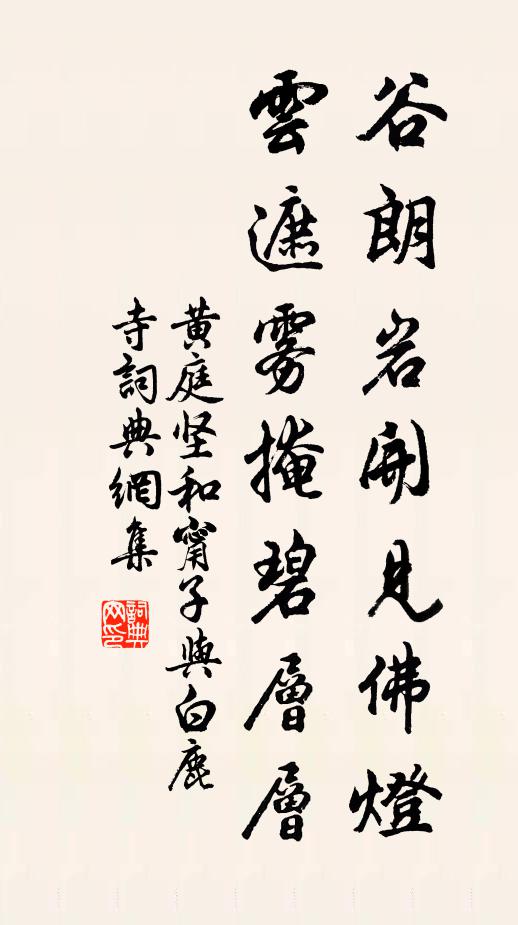 谷朗岩開見佛燈
雲遮雾掩碧層層
黄庭坚和甯子與白鹿
寺詞典網集
詞典网印